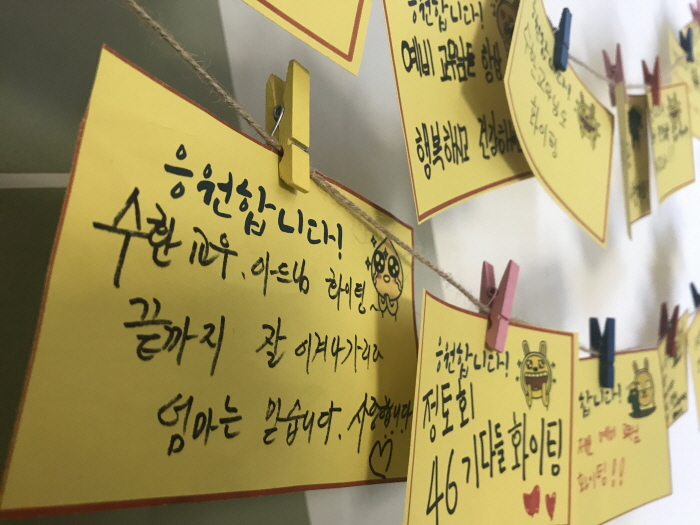 응원합니다!
수환 교우, 아드님 화이팅~
끝까지 잘 이겨나가리라
엄마는 믿습니다. 사랑합니다
응원합니다!
예비 교우님들 항상
행복하시고 건강하
화이팅
응원합니다!
정토회
46기다들 화이팅
합니다!
화이팅!!